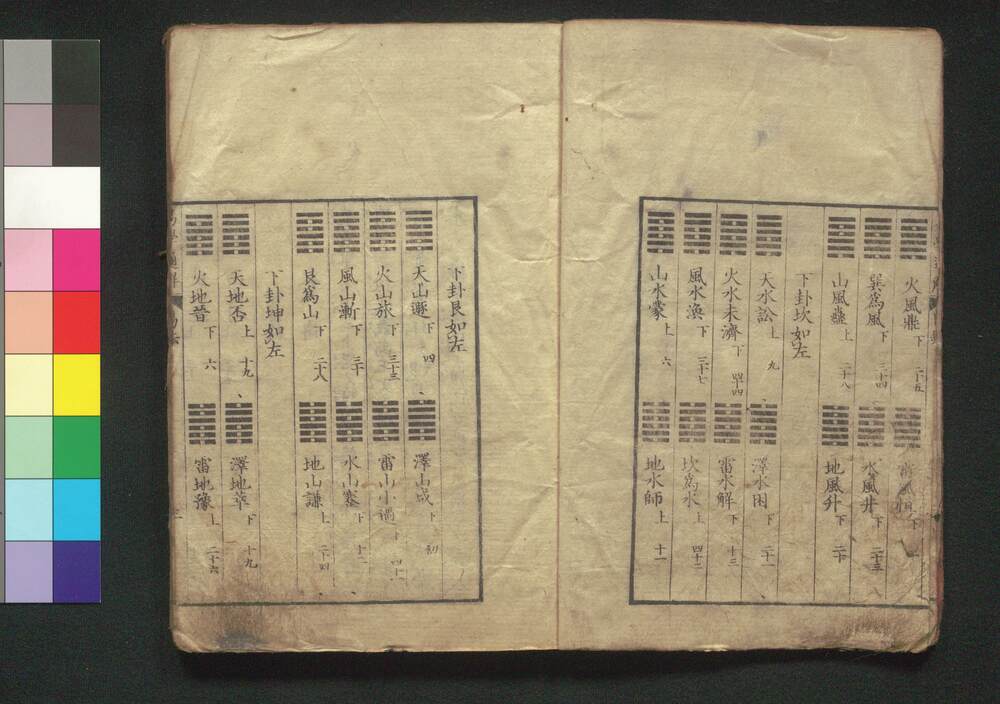 火風鼎 下 二十五
巽爲風 下 三十四
水風井 下 二十三
山風蠱 上 二十八
地風升 下 二十
下卦坎如左
天水訟 上 九
澤水困 下 二十一
火水未濟 下 四十四
雷水解 下 十三
風水渙 下 三十七
坎爲水 上 四十二
山水蒙 上 六
地水師 上 十一
下卦艮如左
天山遯 下 四
澤山咸 下 初
火山旅 下 三十三
雷山小過 下
風山漸 下 三十
水山蹇 下 十二
艮爲山 下 二十八
地山謙 上 二十四
下卦坤如左
天地否 上 十九
澤地萃 下 十九
火地晉 下 六
雷地豫 上 二十六